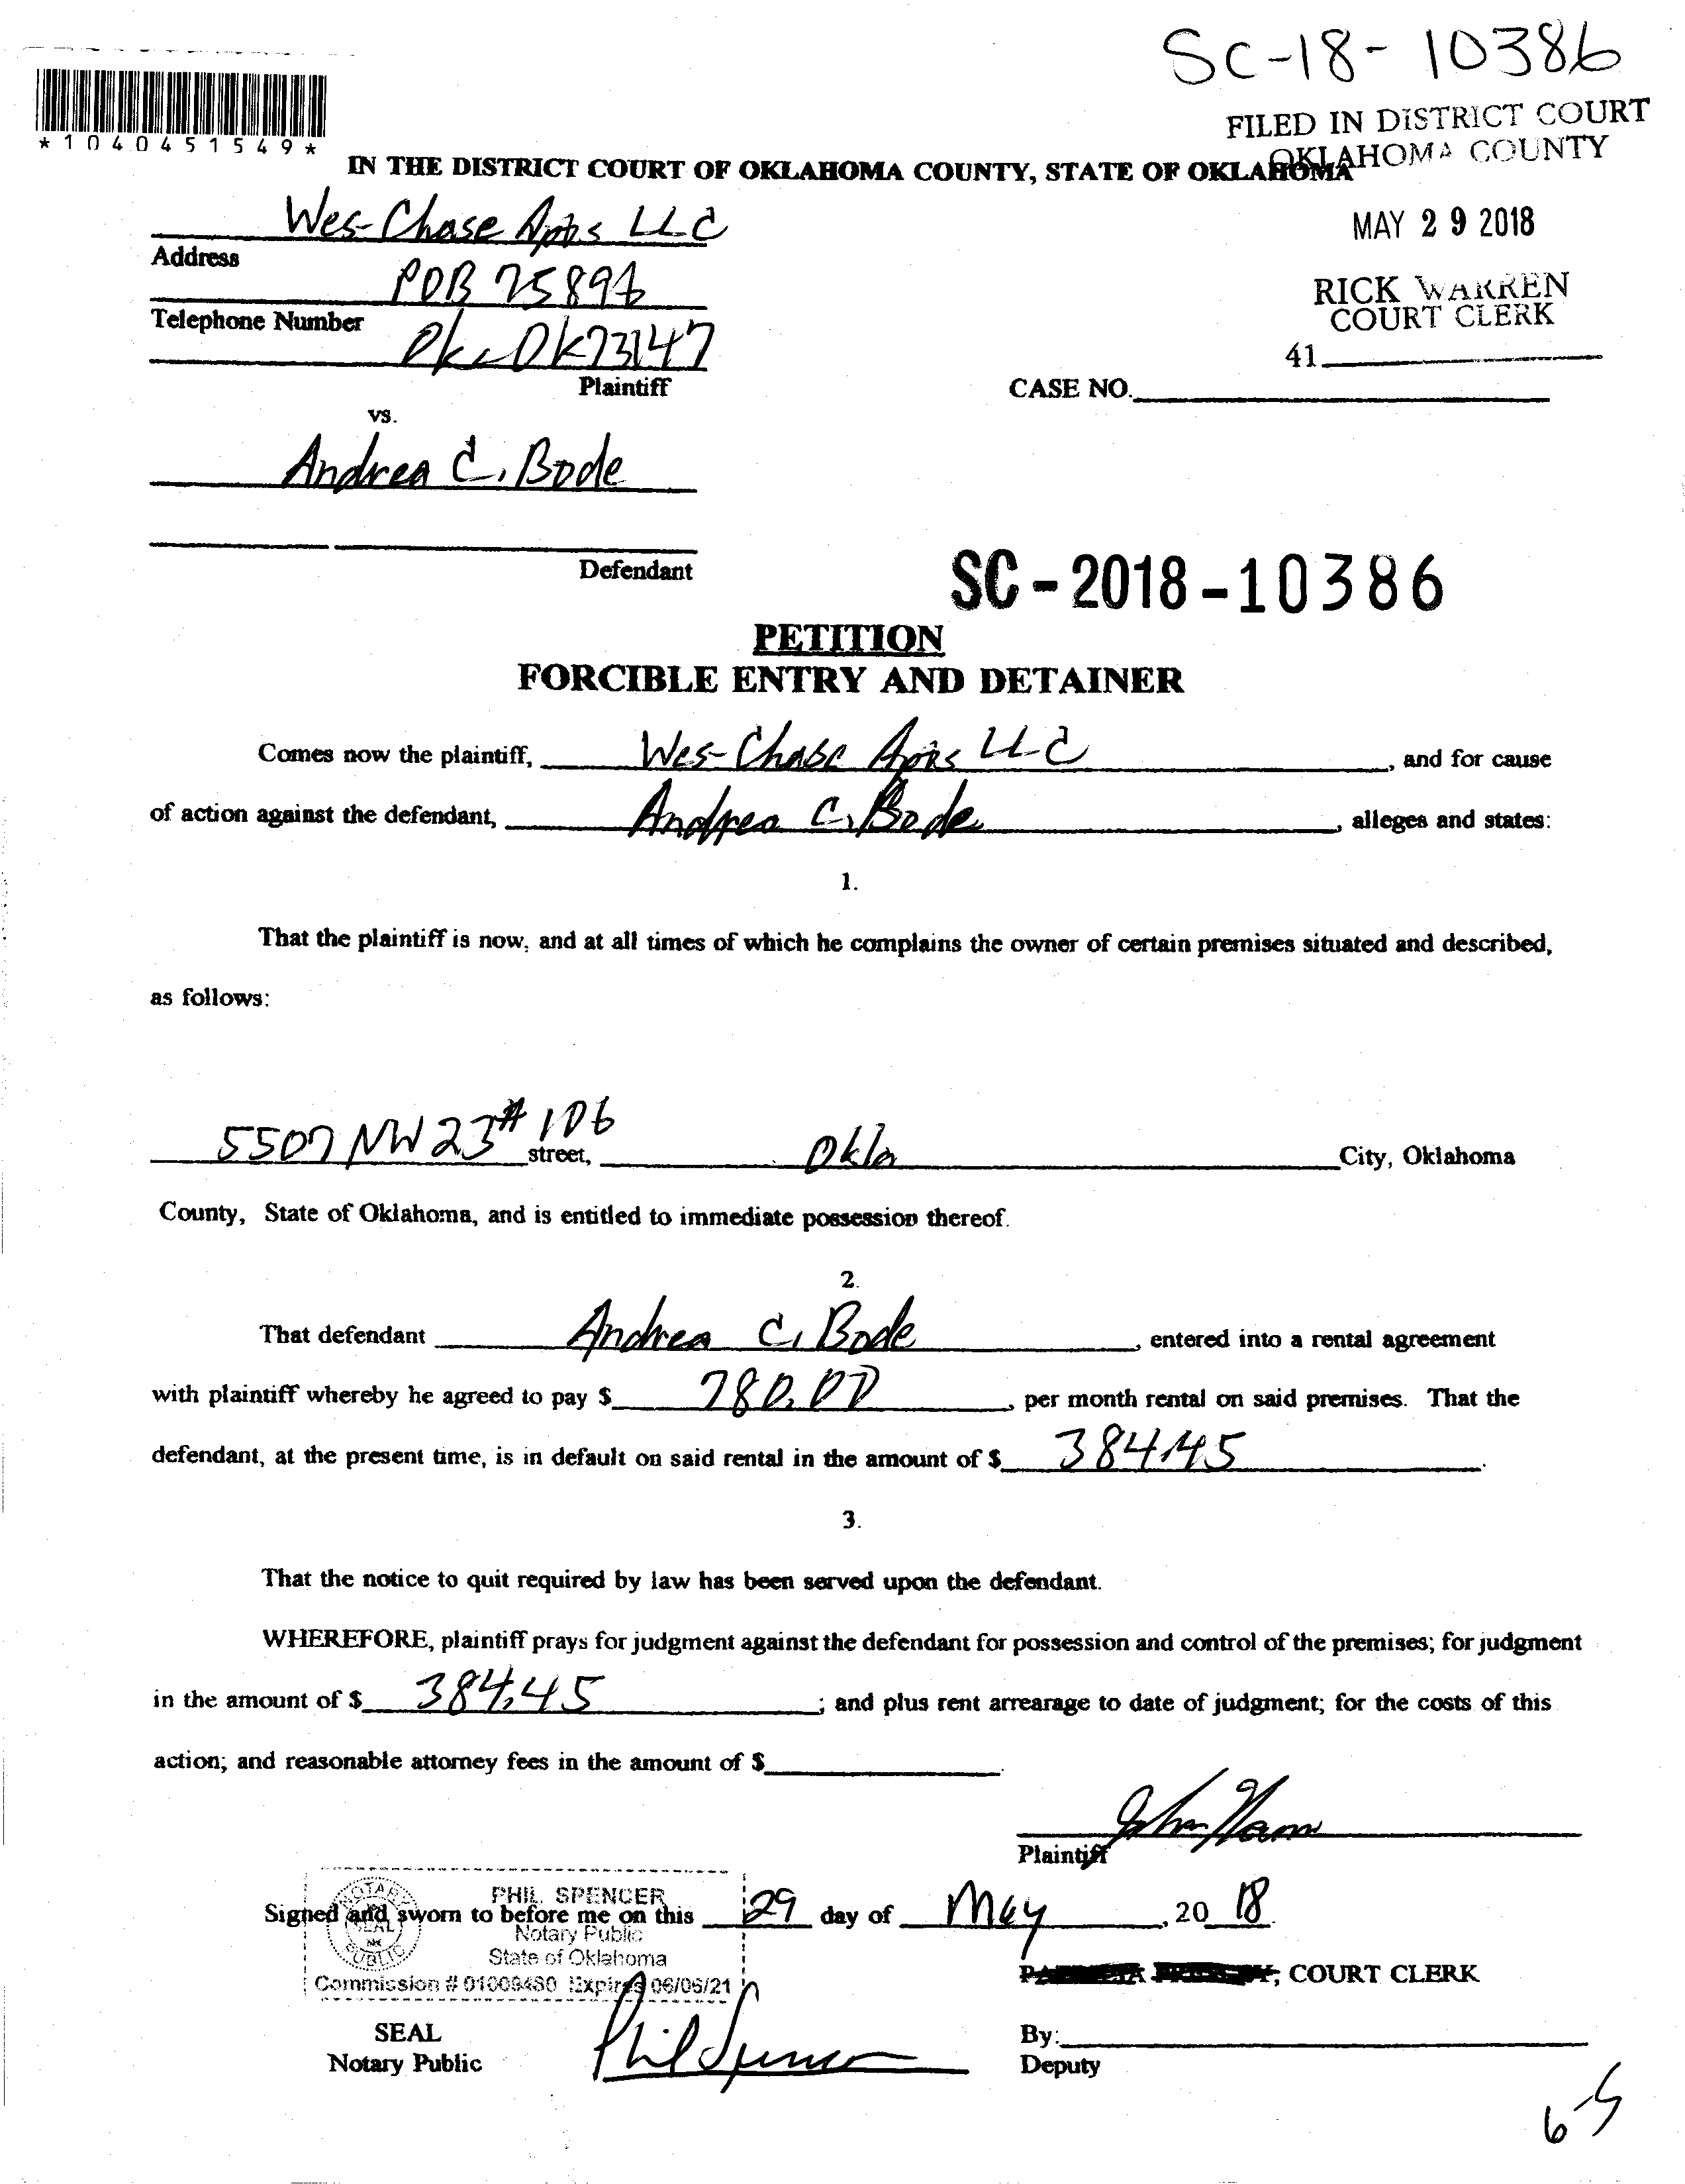 SC-18-10386
*1040451549*
FILED IN DISTRICT COURT
OKLAHOMA COUNTY
IN THE DISTRICT COURT OF OKLAHOMA COUNTY, STATE OF OKLAHOMA
Wes-Chase Apts LLC
MAY 29 2018
Address
POB 75894
RICK WARREN
COURT CLERK
Telephone Number
Ok 73147
41
Plaintiff
CASE NO.
vs.
Andrea C. Bode
Defendant
SC-2018-10386
PETITION
FORCIBLE ENTRY AND DETAINER
Comes now the plaintiff, Wes-Chase Apts LLC, and for cause
of action against the defendant, Andrea C. Bode, alleges and states:
1.
That the plaintiff is now, and at all times of which he complains the owner of certain premises situated and described,
as follows:
5507 NW 23 #106 street, Okla City, Oklahoma
County, State of Oklahoma, and is entitled to immediate possession thereof.
2.
That defendant Andrea C. Bode, entered into a rental agreement
with plaintiff whereby he agreed to pay $ 780.00, per month rental on said premises. That the
defendant, at the present time, is in default on said rental in the amount of $ 384.45.
3.
That the notice to quit required by law has been served upon the defendant.
WHEREFORE, plaintiff prays for judgment against the defendant for possession and control of the premises; for judgment
in the amount of $ 384.45; and plus rent arrearage to date of judgment; for the costs of this
action; and reasonable attorney fees in the amount of $
John
Plaintiff
PHIL SPENCER
Signed and sworn to before me on this 29 day of May, 20 18.
Notary Public
State of Oklahoma
Commission # 01009480 Expires 06/05/21
, COURT CLERK
SEAL
Notary Public
Phil Spencer
By:
Deputy
6-5